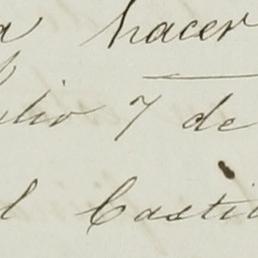 a hacer
Julio 7 de
l Casti